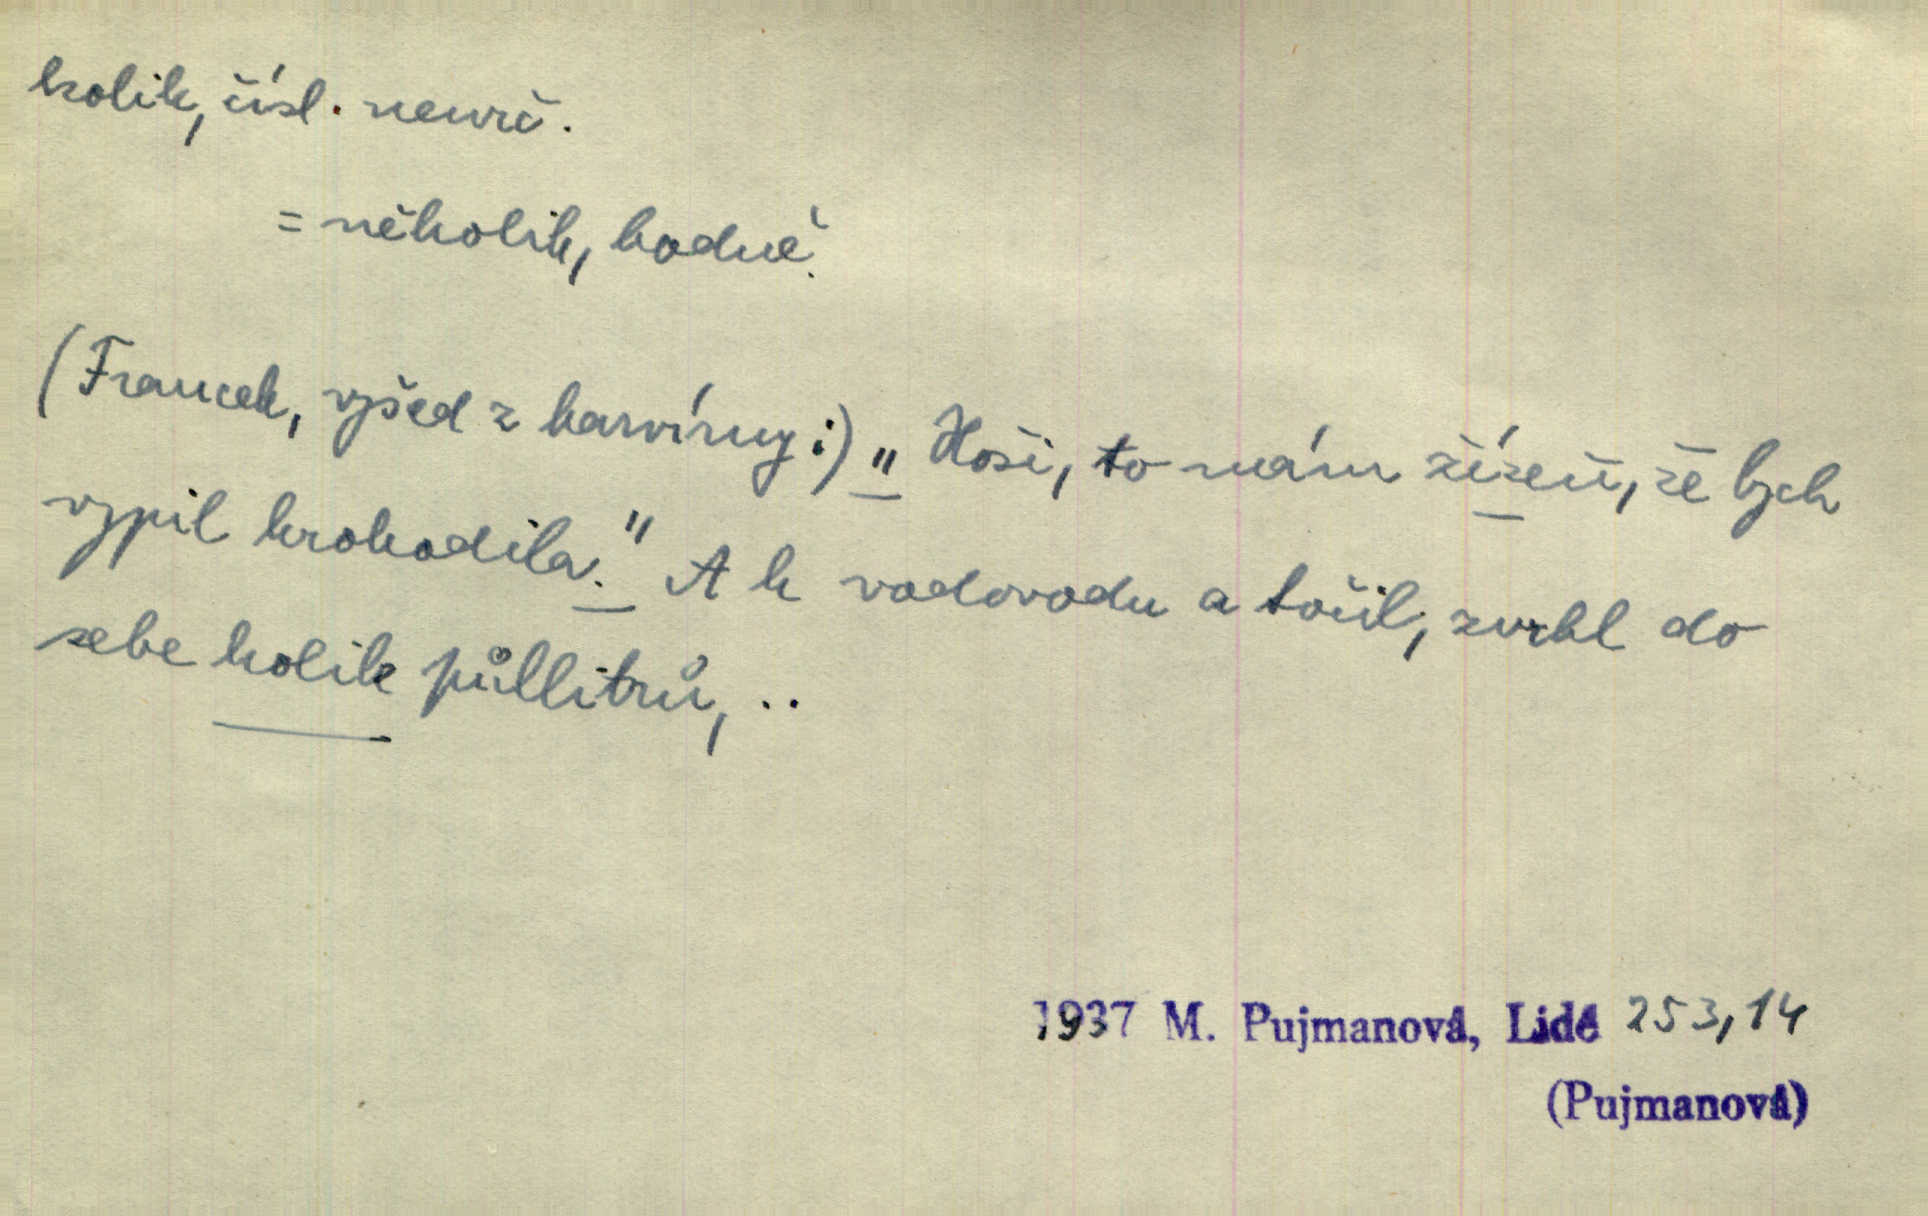 kolik, čísl. neurč.
= několik, hodně.
(Francek, vyšed z barvírny:) " Hoši, to mám žízeň, že bych
vypil krokodila." A k vodovodu a točil, zvrhl do
sebe kolik půllitrů, ..
1937 M. Pujmanová, Lidé 253,14
(Pujmanová)